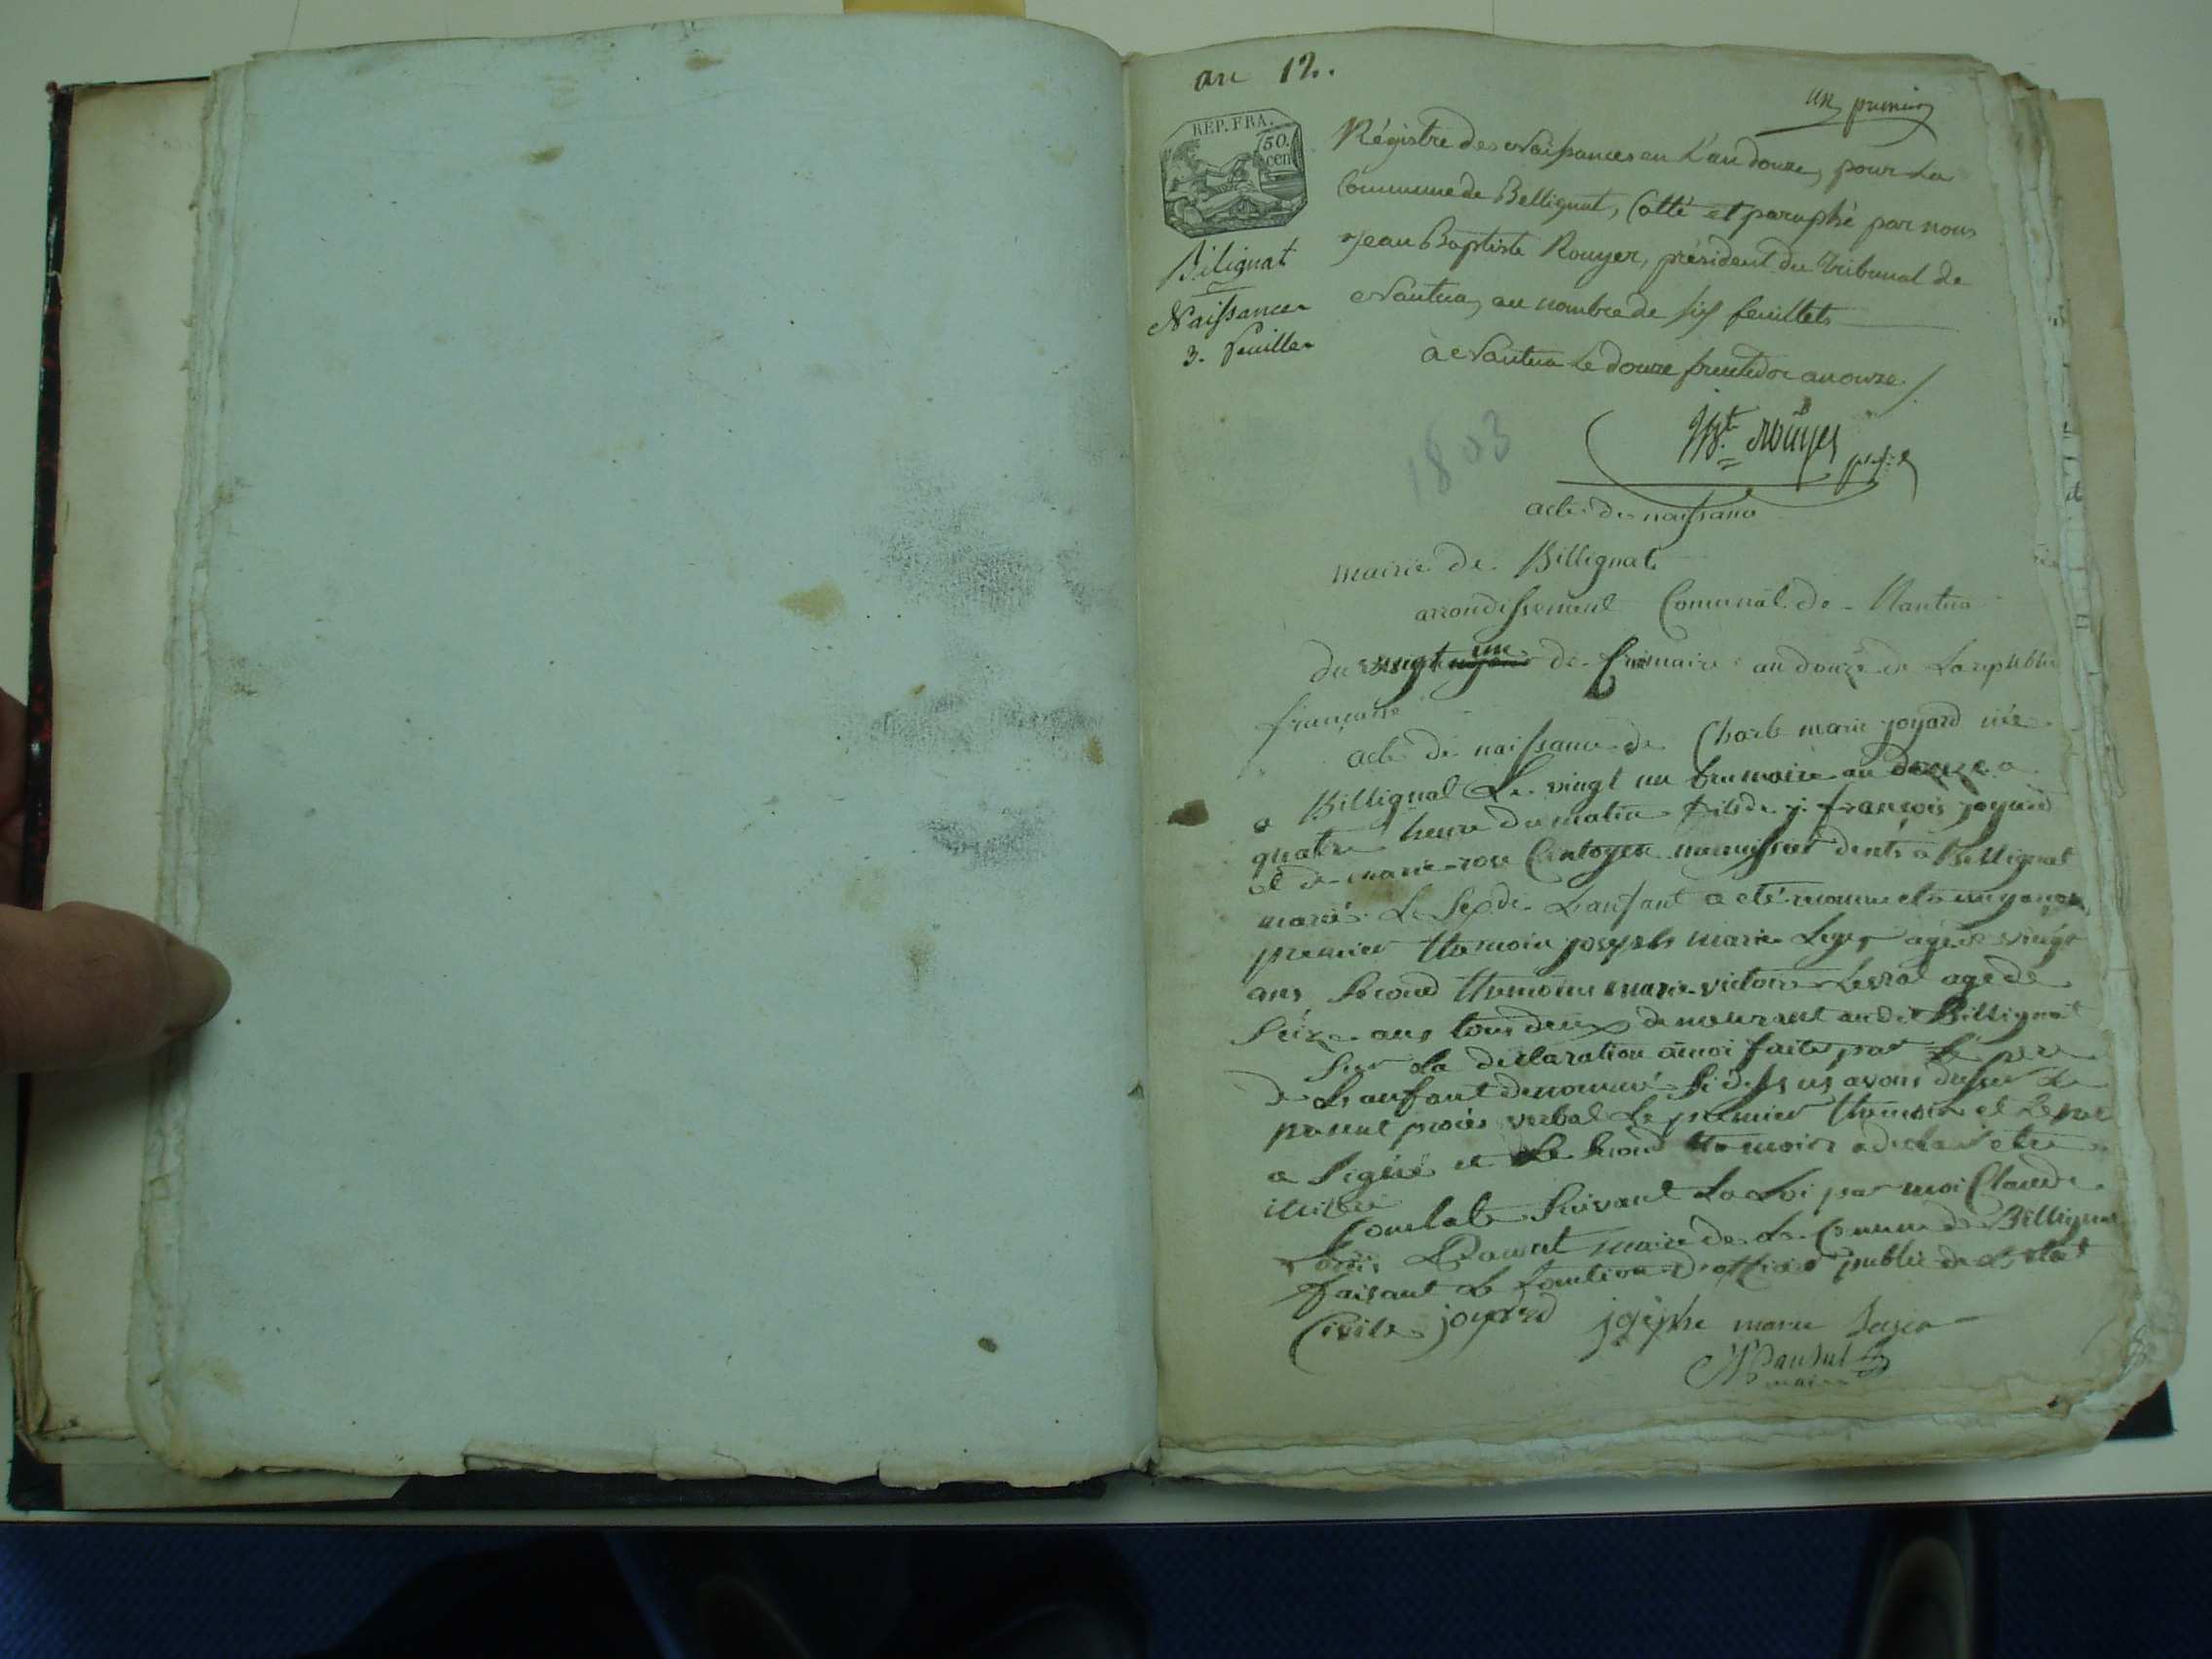 an 12.
un premier
REP. FRA.
50.
cen
Bélignat
Naissances
3. feuilles
Régistre des Naissances en L'an douze, pour La
Commune de Bellignat, Cotté et paraphé par nous
Jean Baptiste Rouyer, président du Tribunal de
Nantua, au nombre de six feuillets
à Nantua Le douze fructidor an onze /.
1803
JBte Rouyer
acte de naissance
mairie de Billignat
arrondissement Comunal de Nantua
du vingt un de frimaire an douze de La republi
française
acte de naissance de Charle marie joyard née
a Billignat Le vingt un brumaire an douze a
quatre heure du matin fils de j. françois joyard
et de marie rose à Billignat
mariés Le L'anfant a eté reconnu etre un garson
premier temoin joseph marie Leger agé de vingt
ans Second temoins marie victoire agé de
Seize ans tous deux demeurant audit Billignat
Sur La declaration a moi faite par Le pere
de L'anfant denommé si dessus avons dressé Le
presant procès verbal Le premier temoin et Le pere
a signé et Le Second temoin a declaré etre
illitéré
Constaté Suivant La Loi par moi Claude
maire de La Comune de Billignat
faisant Le fonction d'officier public de L'etat
Civile joyard josephe marie Leger
maire